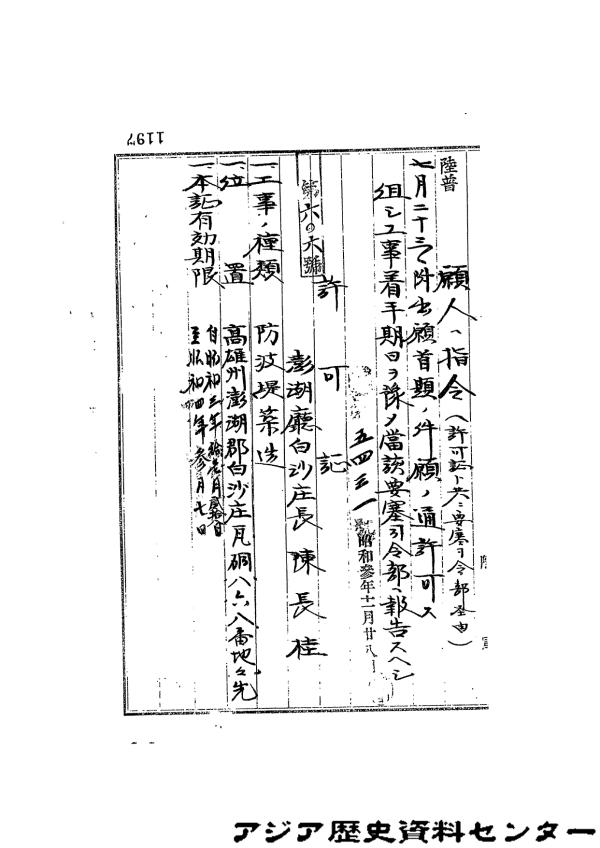 1197
陸普
願人ヘ指令(許可証ト共ニ要塞司令部経由)
七月二十三日附出願首題ノ件願ノ通許可ス
但シ工事着手期日ヲ予メ当該要塞司令部ヘ報告スヘシ
五四三一 昭和参年十一月廿八日
第六の六號
許可証
澎湖廳白沙庄長 陳長桂
一、工事ノ種類 防波堤築造
一、位置 高雄州澎湖郡白沙庄瓦硐八六八番地々先
一、本証有効期限 自昭和三年
至昭和四年参月七日
アジア歴史資料センター